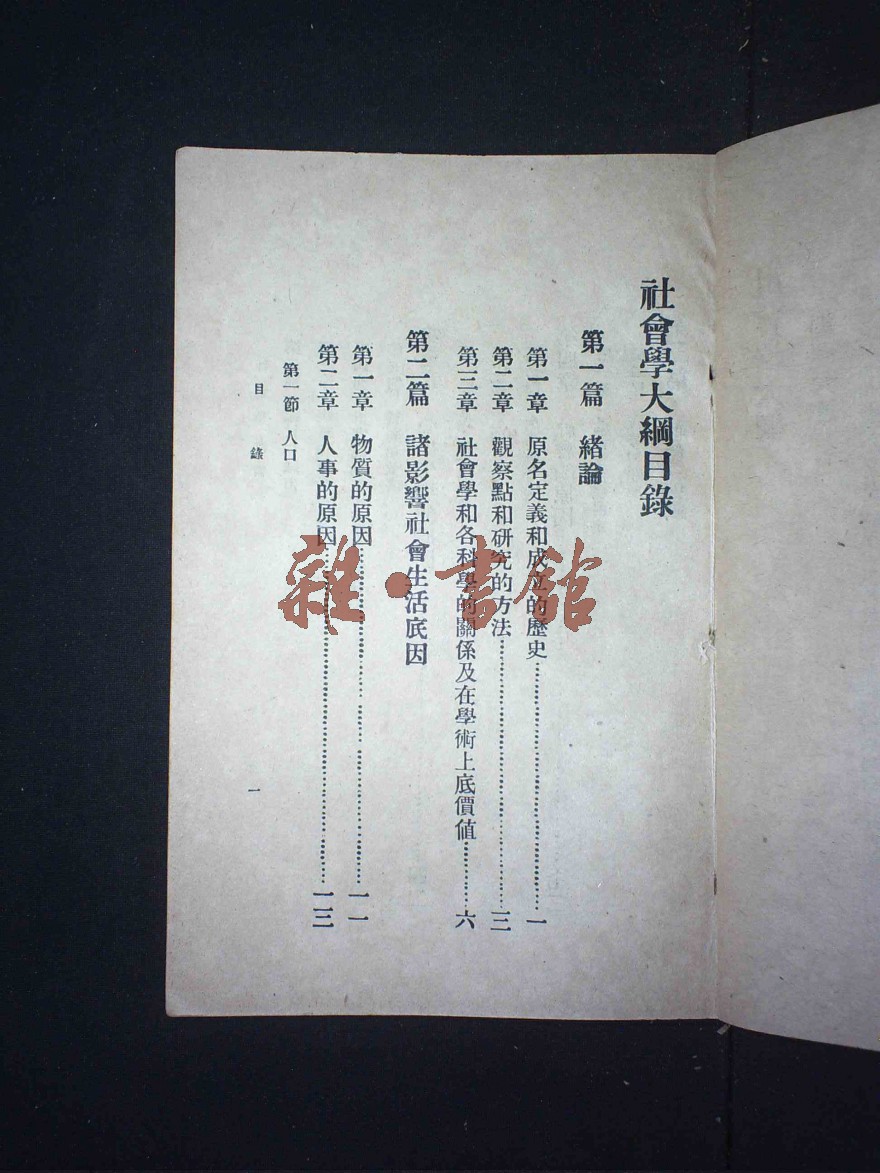 社會學大綱目錄
第一篇 緒論
第一章 原名定義和成立的歷史……一
第二章 觀察點和研究的方法……三
第三章 社會學和各科學的關係及在學術上底價值……六
第二篇 諸影響社會生活底因
第一章 物質的原因……一一
第二章 人事的原因……一三
第一節 人口
目錄
一
雜·書館